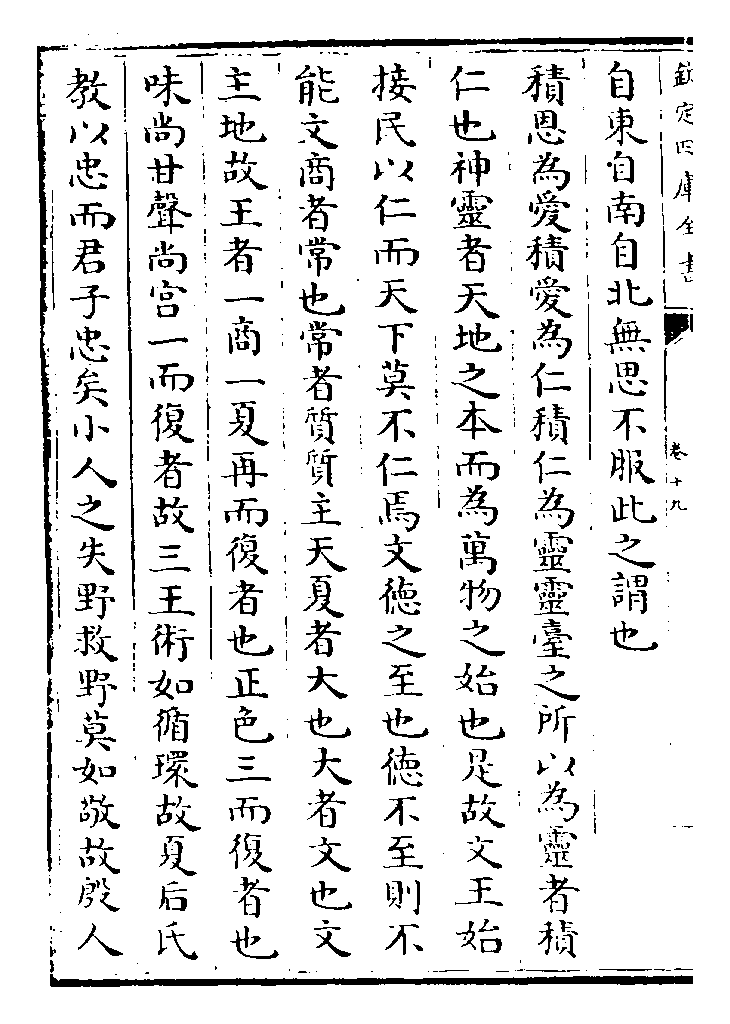 欽定四庫全書
卷十九
自東自南自北無思不服此之謂也
積恩為愛積愛為仁積仁為靈靈臺之所以為靈者積
仁也神靈者天地之本而為萬物之始也是故文王始
接民以仁而天下莫不仁焉文德之至也德不至則不
能文商者常也常者質質主天夏者大也大者文也文
主地故王者一商一夏再而復者也正色三而復者也
味尚甘聲尚宫一而復者故三王術如循環故夏后氏
教以忠而君子忠矣小人之失野救野莫如敬故殷人